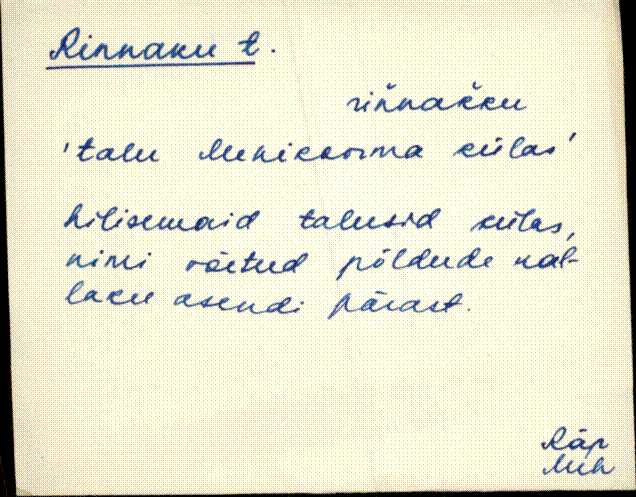 Rinnaku t.
riňnakku
'talu Mehikoorma külas'
hilisemaid talusid külas,
nimi võetud põldude kal-
laku asendi pärast.
Räp
Meh